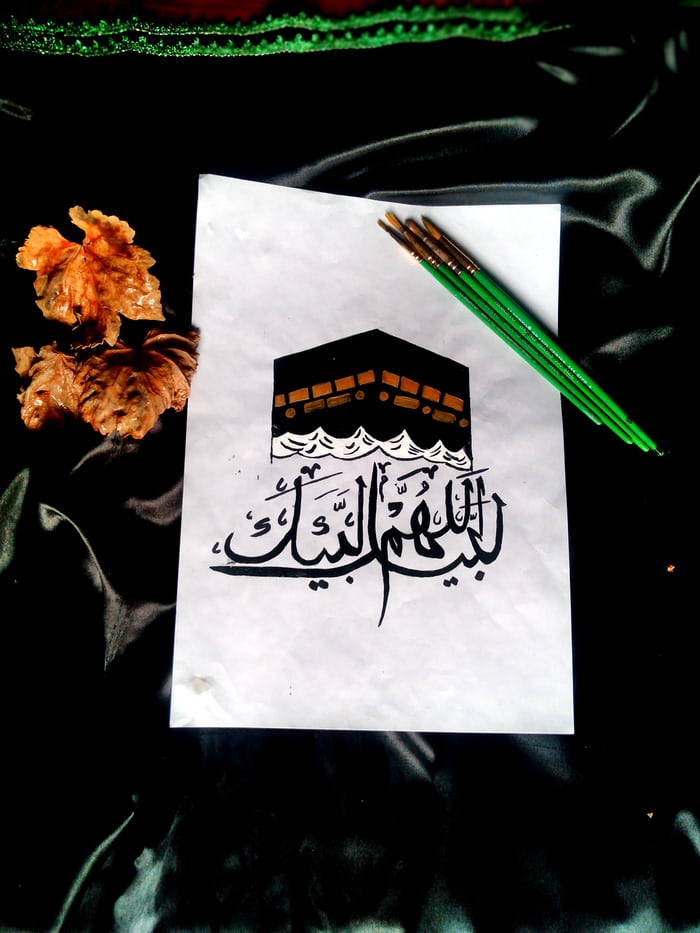 لَبَّيْكَ اللَّهُمَّ لَبَّيْكَ